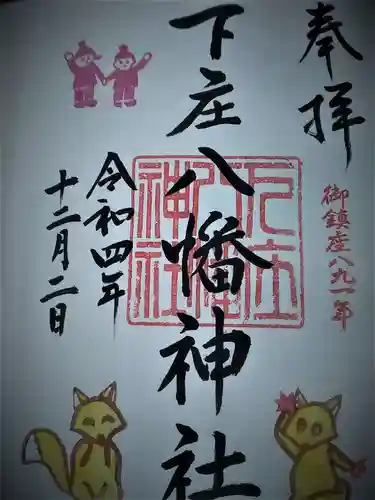 奉拝
御鎮座八九一年
下庄八幡神社
下庄八幡神社
令和四年
十二月二日